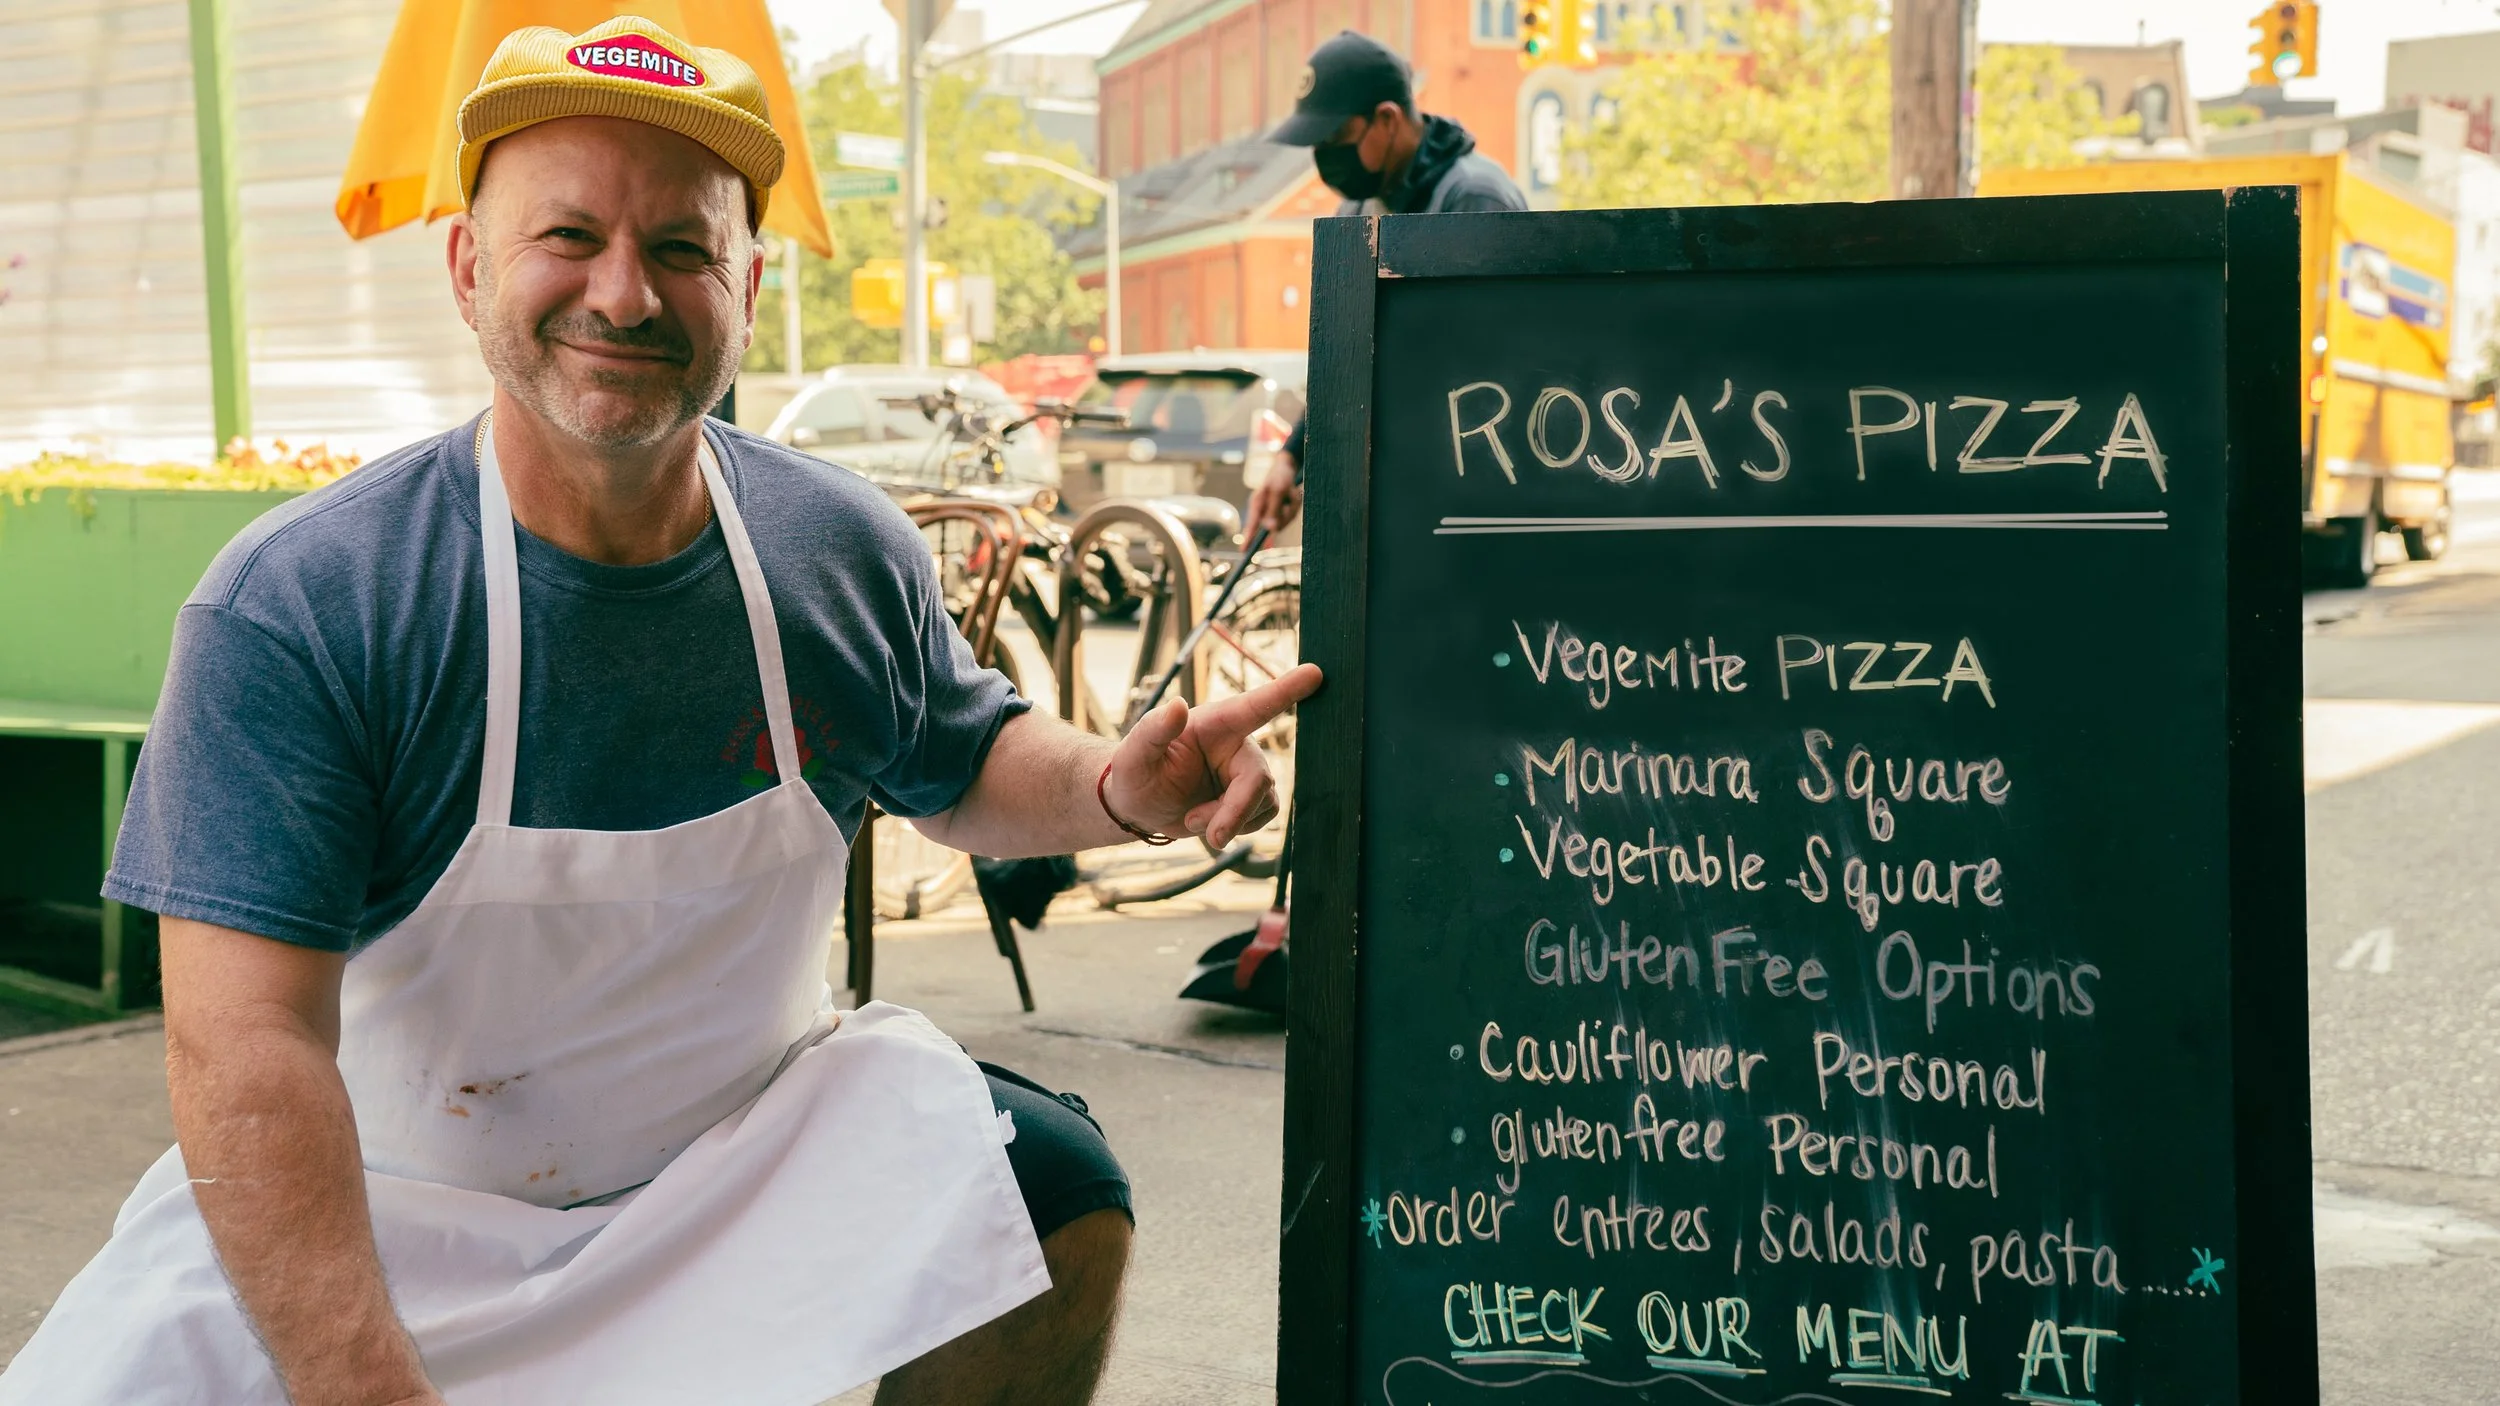 VEGEMITE
ROSA'S PIZZA
ROSA'S PIZZA
• Vegemite PIZZA
• Marinara Square
• Vegetable Square
Gluten Free Options
• Cauliflower Personal
• gluten free Personal
*Order entrees, salads, pasta......*
CHECK OUR MENU AT